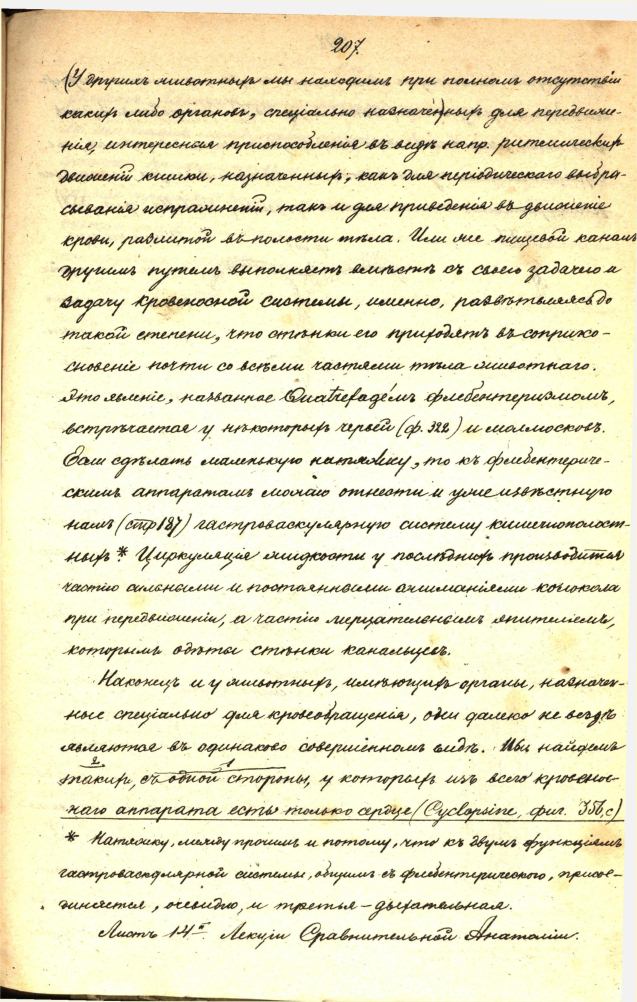 207.
(У другихъ животныхъ мы находимъ при полномъ отсутствіи
какихъ либо органовъ, спеціально назначенныхъ для передвиже-
нія, интересныя приспособленія въ видѣ напр. ритмическихъ
движеній кишки, назначенныхъ, какъ для періодическаго выбра-
сыванія испражненій, такъ и для приведенія въ движеніе
крови, разлитой въ полости тѣла. Или же пищевой каналъ
другимъ путемъ выполняетъ вмѣстѣ съ своею задачею и
задачу кровеносной системы, именно, развѣтвляясь до
такой степени, что стѣнки его приходятъ въ соприко-
сновеніе почти со всѣми частями тѣла животнаго.
Это явленіе, названное Quatrefagé'мъ флебентеризмомъ,
встрѣчается у нѣкоторыхъ червей (ф. 322) и моллюсковъ.
Если сдѣлать маленькую натяжку, то къ флебентериче-
скимъ аппаратамъ можно отнести и уже извѣстную
намъ (стр 187) гастроваскулярную систему кишечнополост-
ныхъ * Циркуляція жидкости у послѣднихъ производится
частію сильными и постоянными сжиманіями колокола
при передвиженіи, а частію мерцательнымъ эпителіемъ,
которымъ одѣты стѣнки канальцевъ.
Наконецъ и у животныхъ, имѣющихъ органы, назначен-
ные спеціально для кровообращенія, они далеко не вездѣ
являются въ одинаково совершенномъ видѣ. Мы найдемъ
2 1
такихъ, съ одной стороны, у которыхъ изъ всего кровенос-
наго аппарата есть только сердце (Cyclopsine, фиг. 356, c)
* Натяжку, между прочимъ и потому, что къ двумъ функціямъ
гастроваскулярной системы, общимъ съ флебентерическою, присое-
диняется, очевидно, и третья – дыхательная.
Листъ 14й Лекціи Сравнительной Анатоміи.